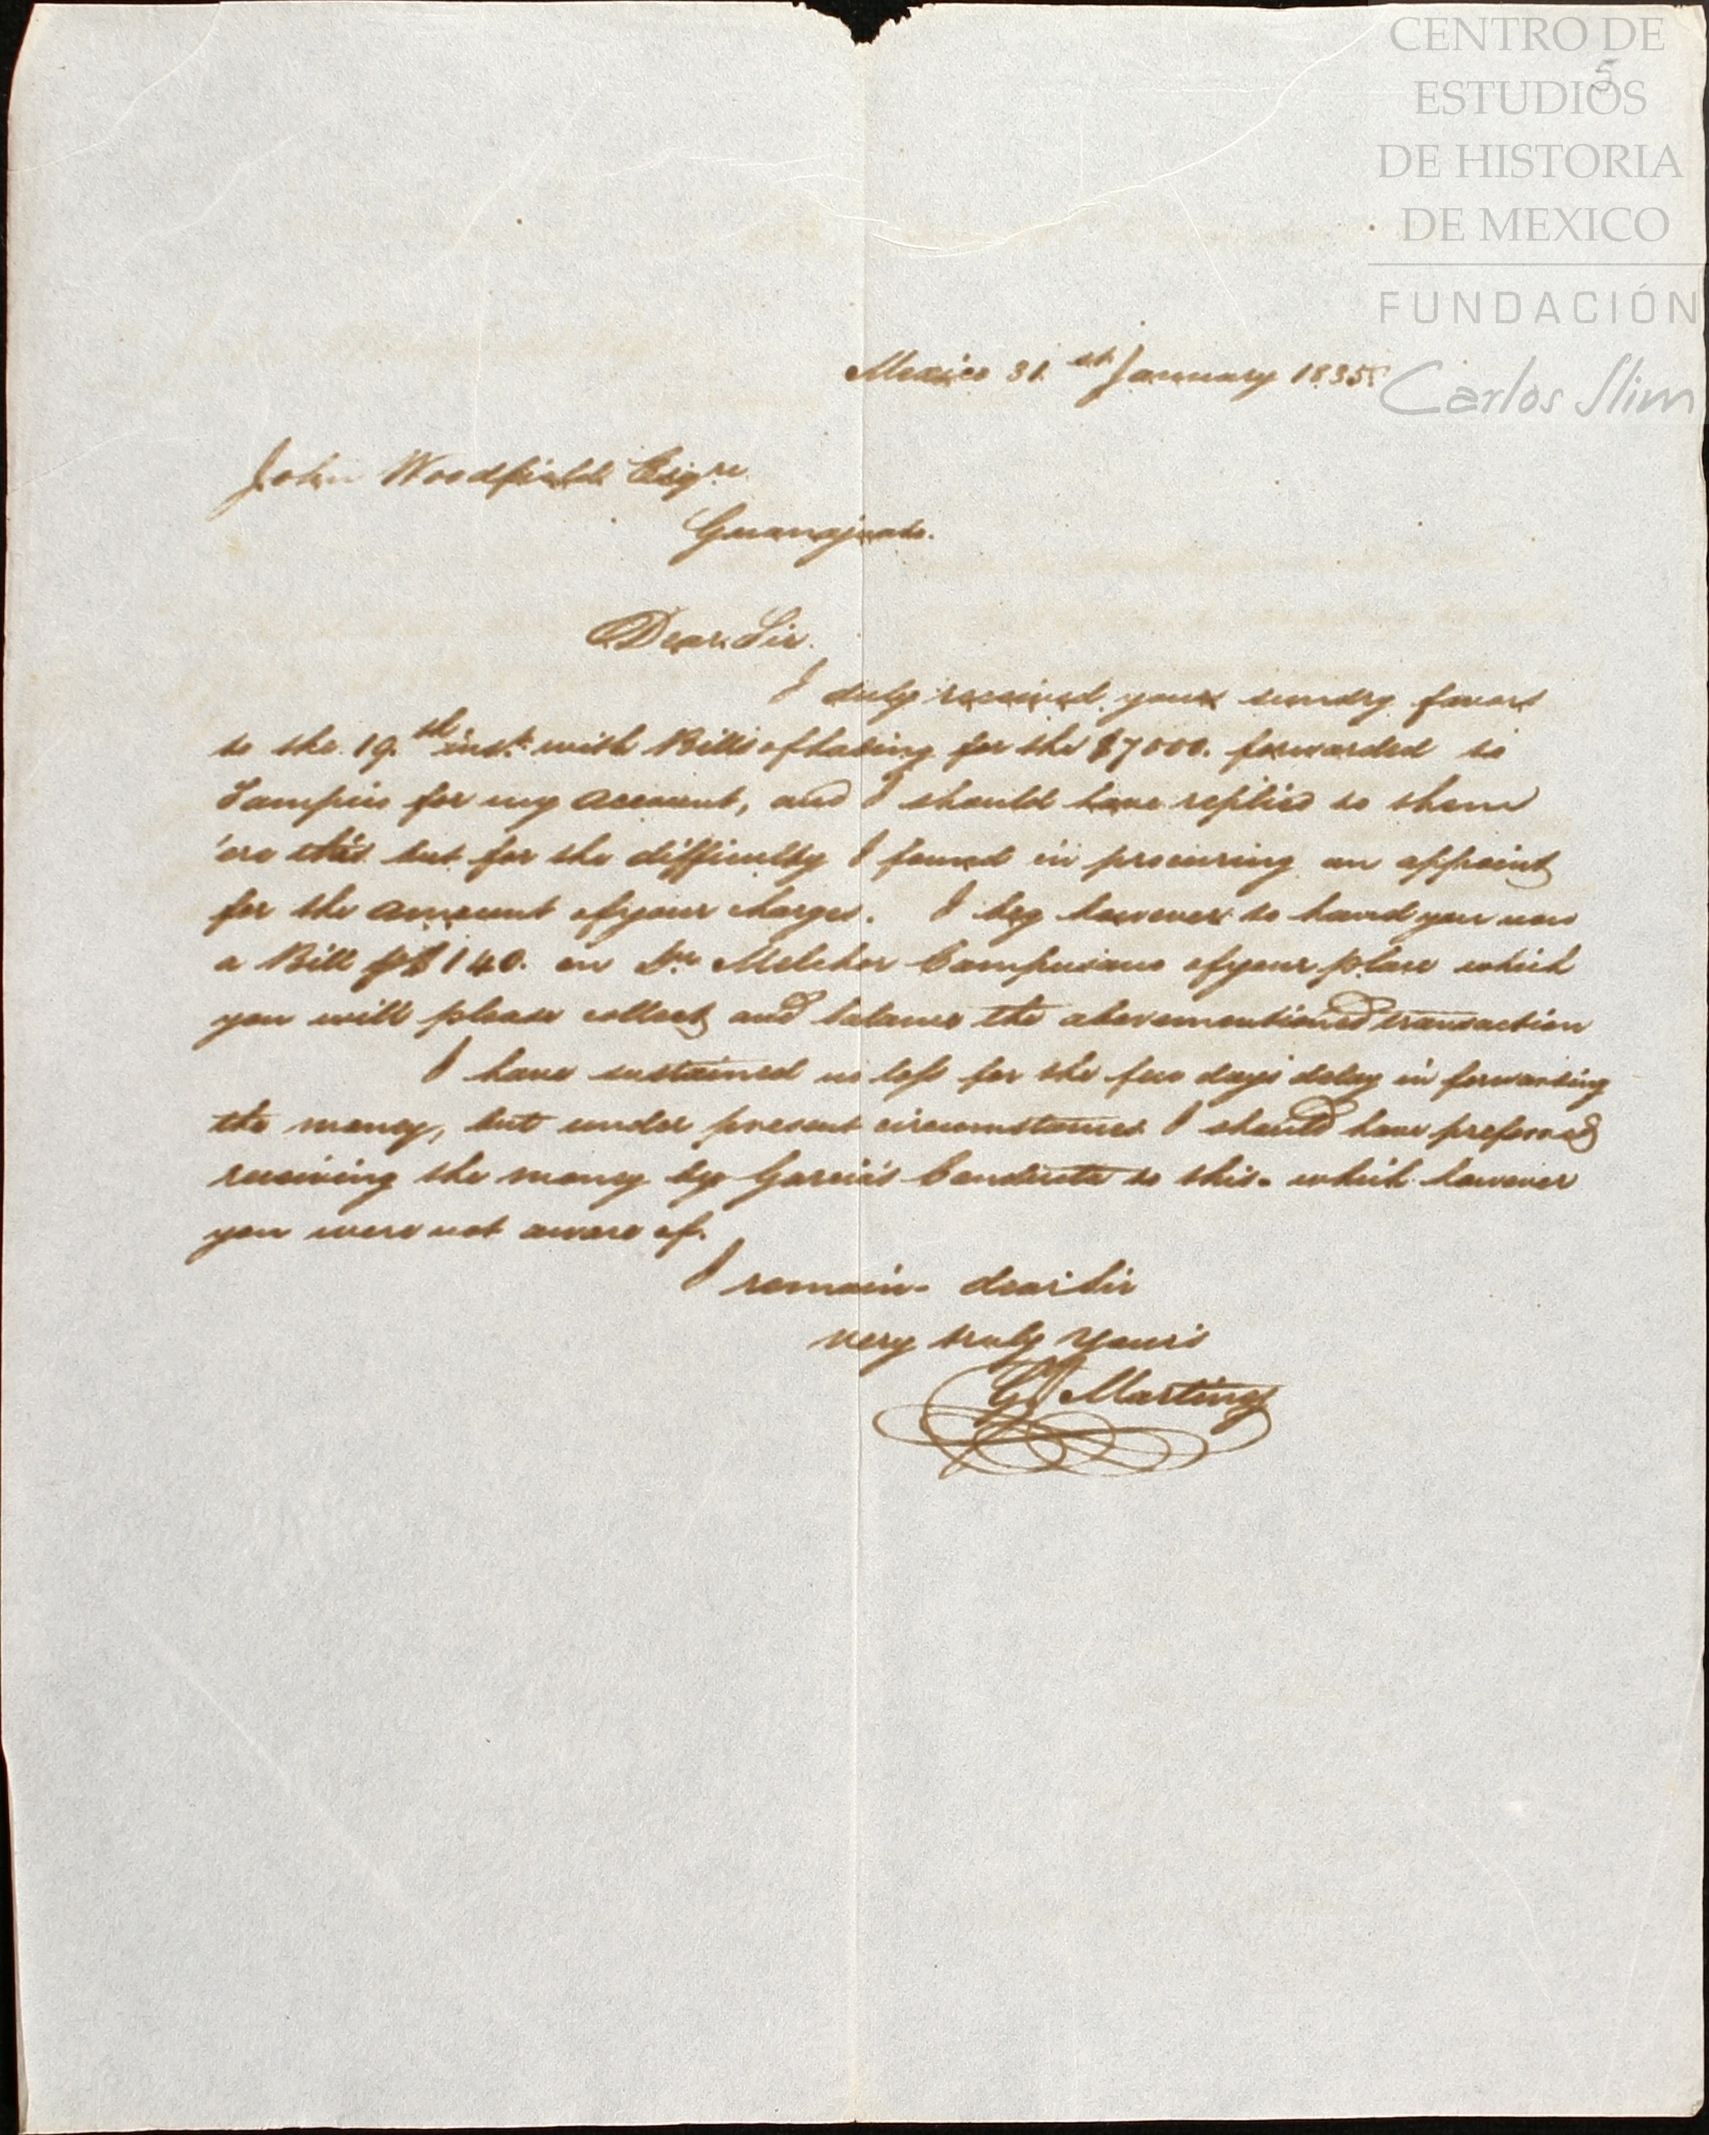 CENTRO DE
ESTUDIOS
DE HISTORIA
DE MEXICO
FUNDACIÓN
Carlos Slim
5
Mexico 31.st January 1835
John Woodfield Esqre.
Guanajuato.
Dear Sir.
I duly received your sundry favors
to the 19.th inst. with Bills of lading for the $7000. forwarded to
Tampico for my account, and I should have replied to them
'ere this but for the difficulty I found in procuring an appoint
for the amount of your charges. I beg however to hand you now
a Bill pr $140. on Melchor Campusano of your place which
you will please collect and balance the abovementioned transaction
I have sustained no loss for the few days delay in forwarding
the money, but under present circumstances I should have preferred
receiving the money by Garcia's Conducta to this. which however
you were not aware of.
I remain. dear Sir
very truly Yours
G Martiny